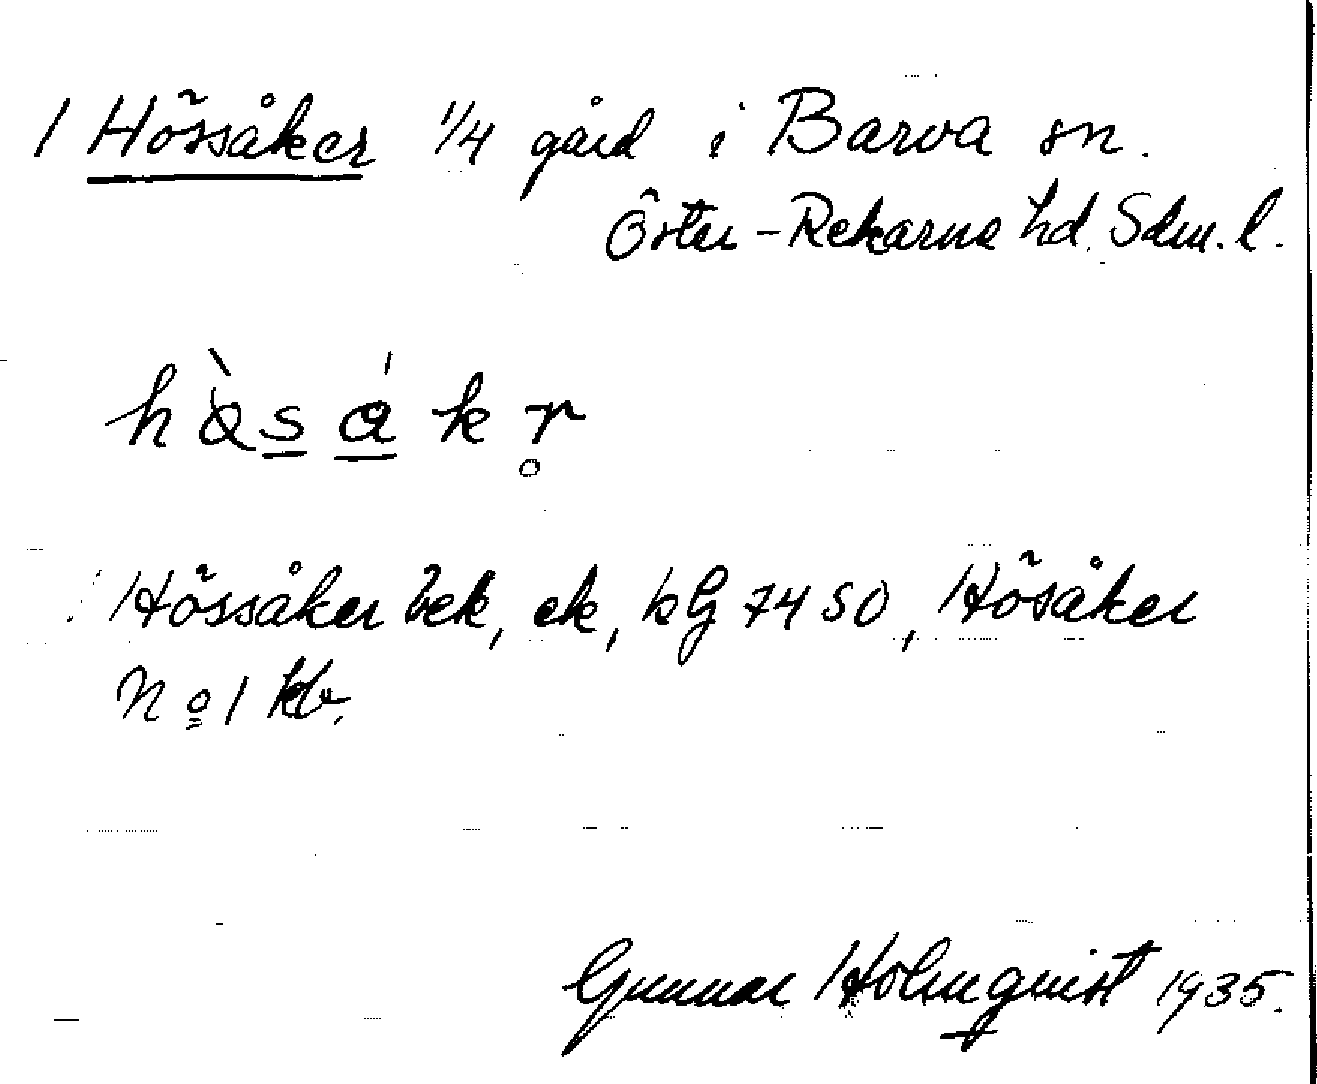 1 Hössåker 1/4 gård i Barva sn.
Öster-Rekarne hd. Sdm. l.
Hössåker bek, ek, kG 7450, Hösåker
No 1 kb.
Gunnar Holmquist 1935.